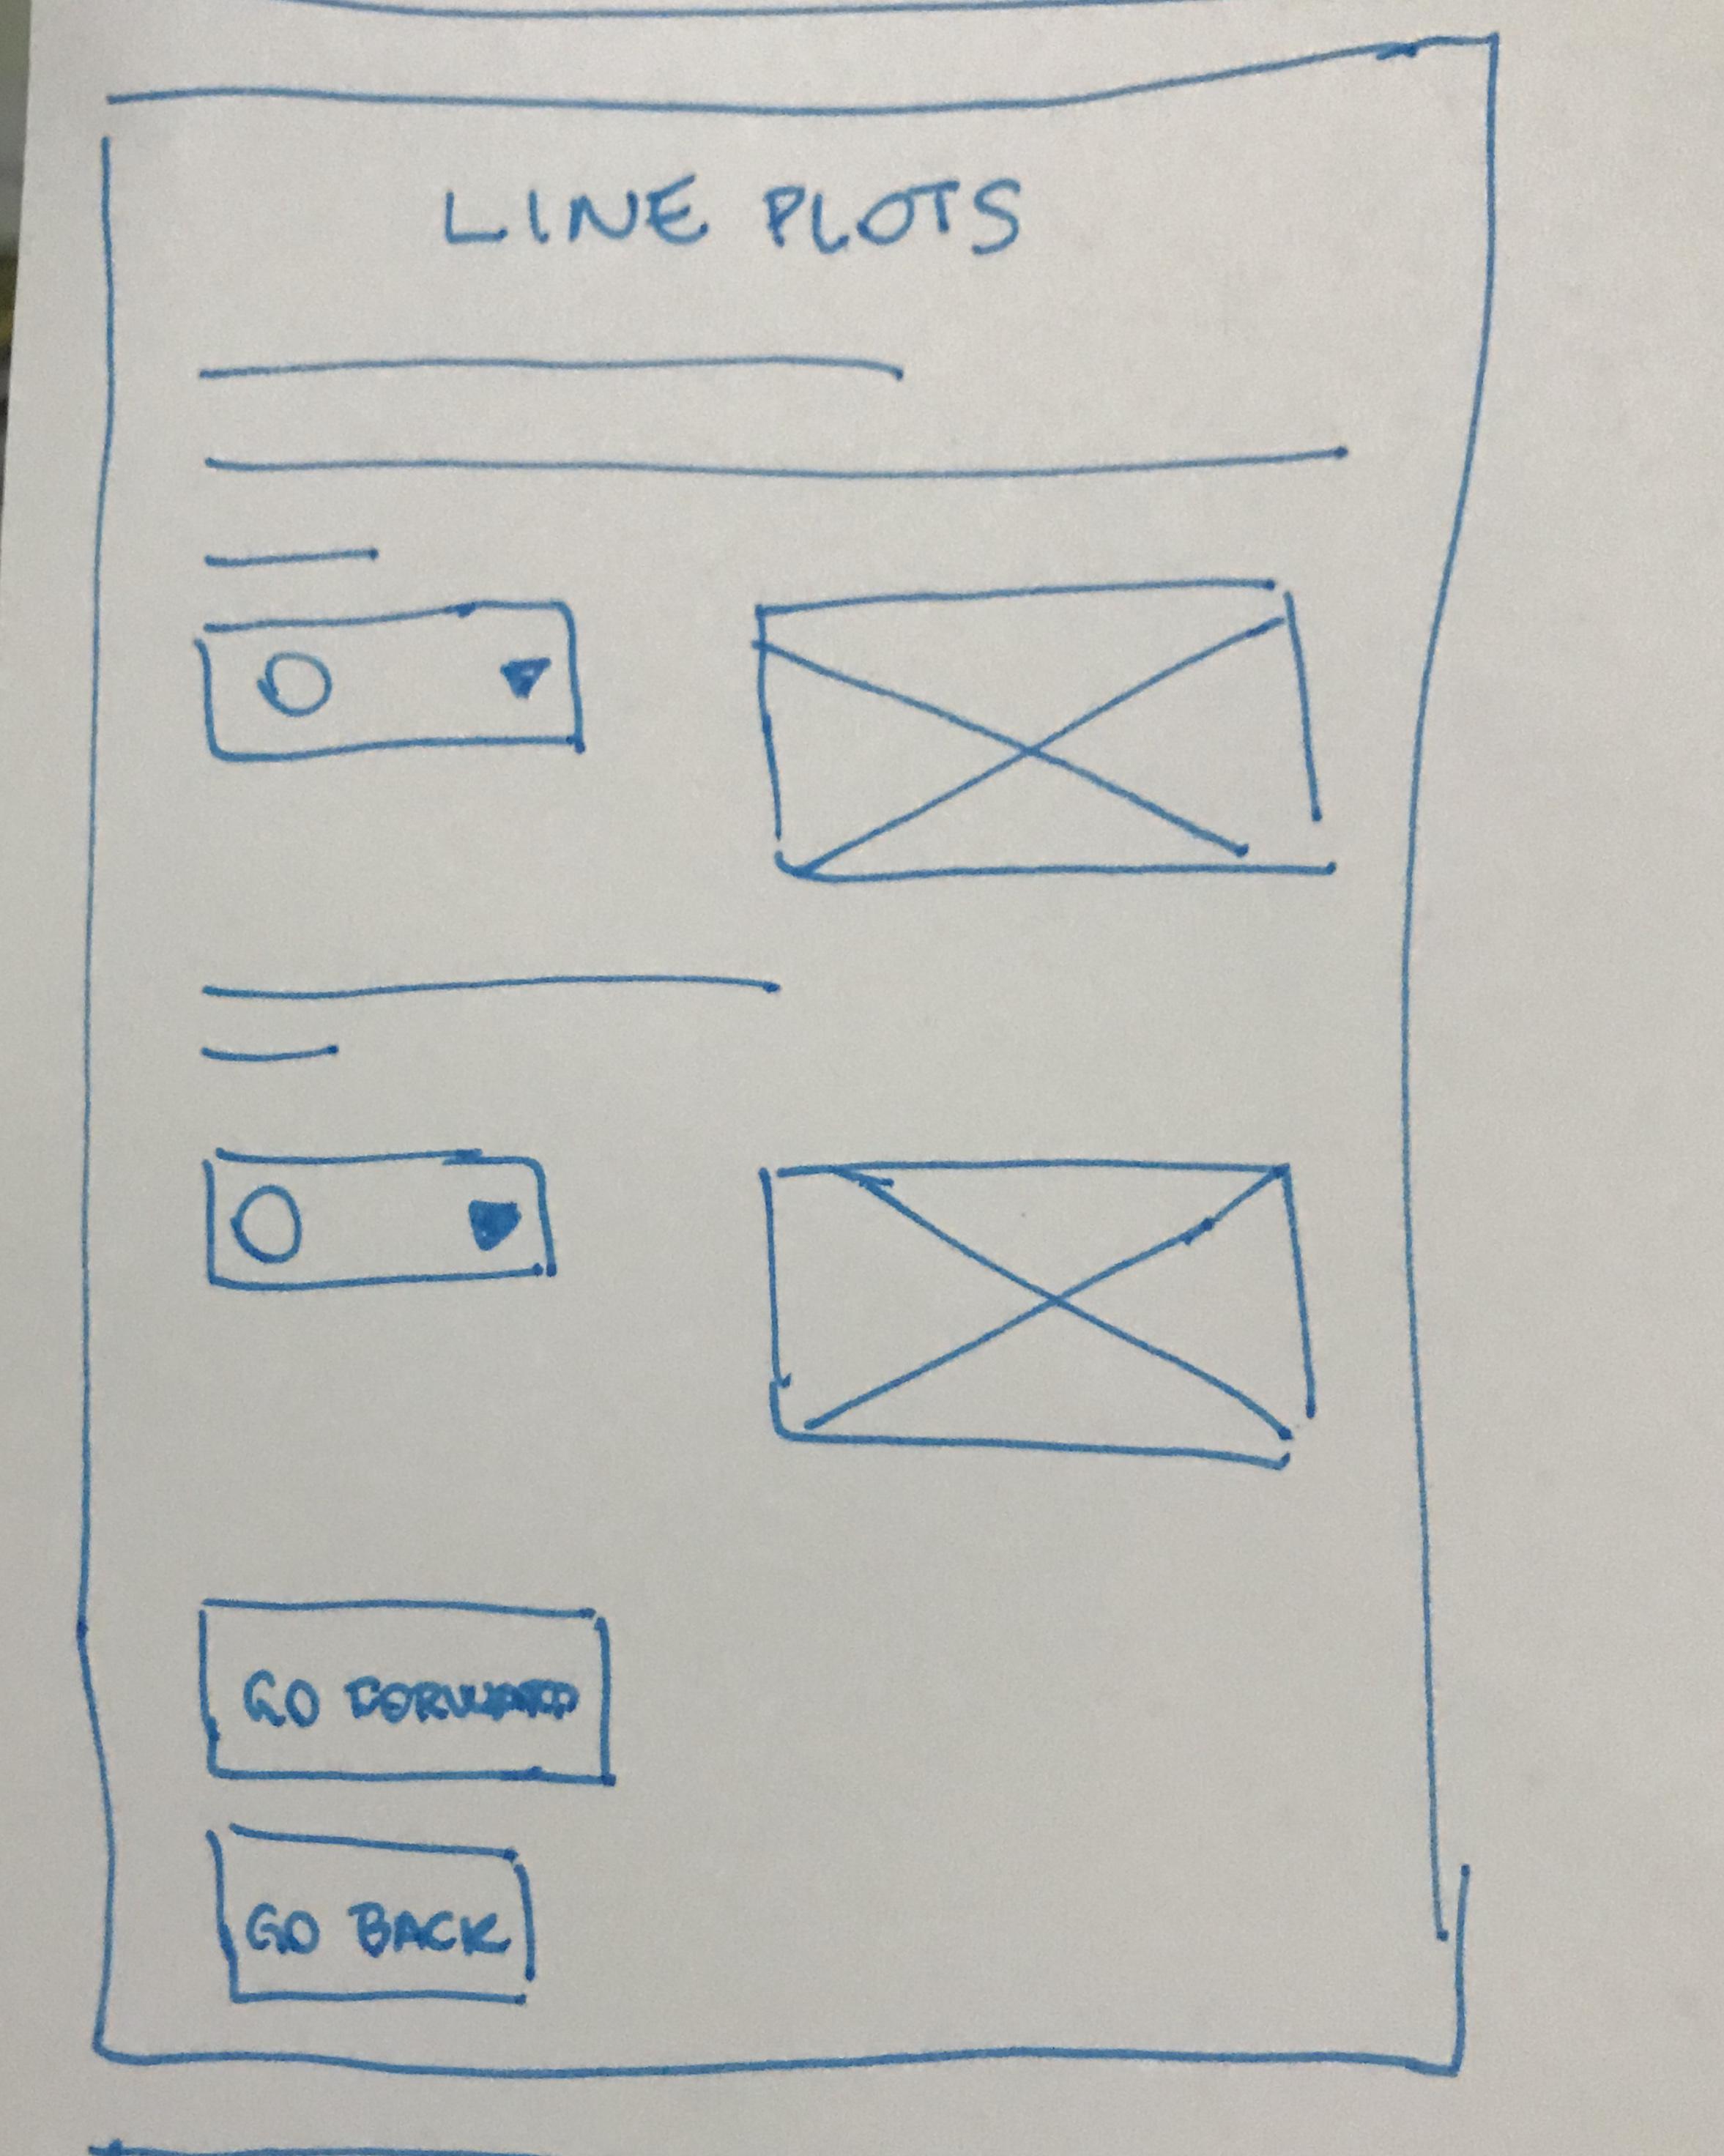 LINE PLOTS
GO FORWARD
GO BACK